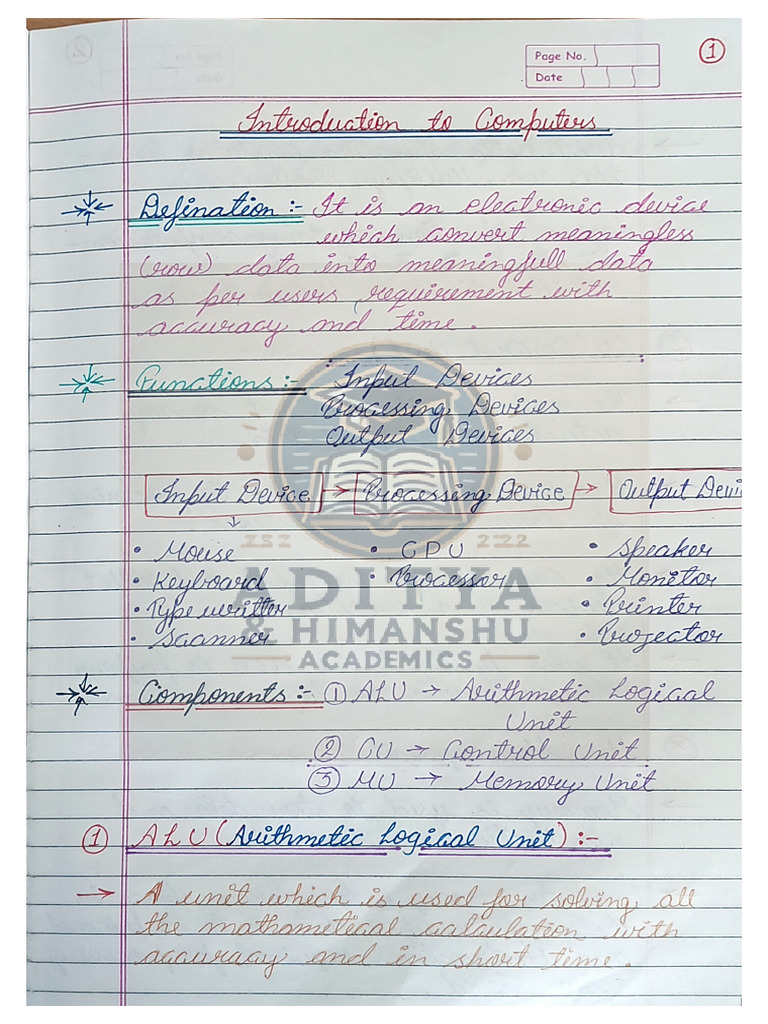 Page No.
Date
1
Introduction to Computers
Defination :- It is an electronic device
which convert meaningless
(row) data into meaningfull data
as per users requirement with
accuracy and time.
Functions :- Input Devices
Processing Devices
Output Devices
Input Device → Processing Device → Output Devi
• Mouse • CPU • Speaker
• Keyboard • Processor • Monitor
• Type writter • Printer
• Scanner • Projector
ADITYA
& HIMANSHU
ACADEMICS
Components :- ① ALU → Arithmetic Logical
Unit
② CU → Control Unit
③ MU → Memory Unit
① ALU (Arithmetic Logical Unit) :-
→ A unit which is used for solving all
the mathametical calculation with
accuracy and in short time.